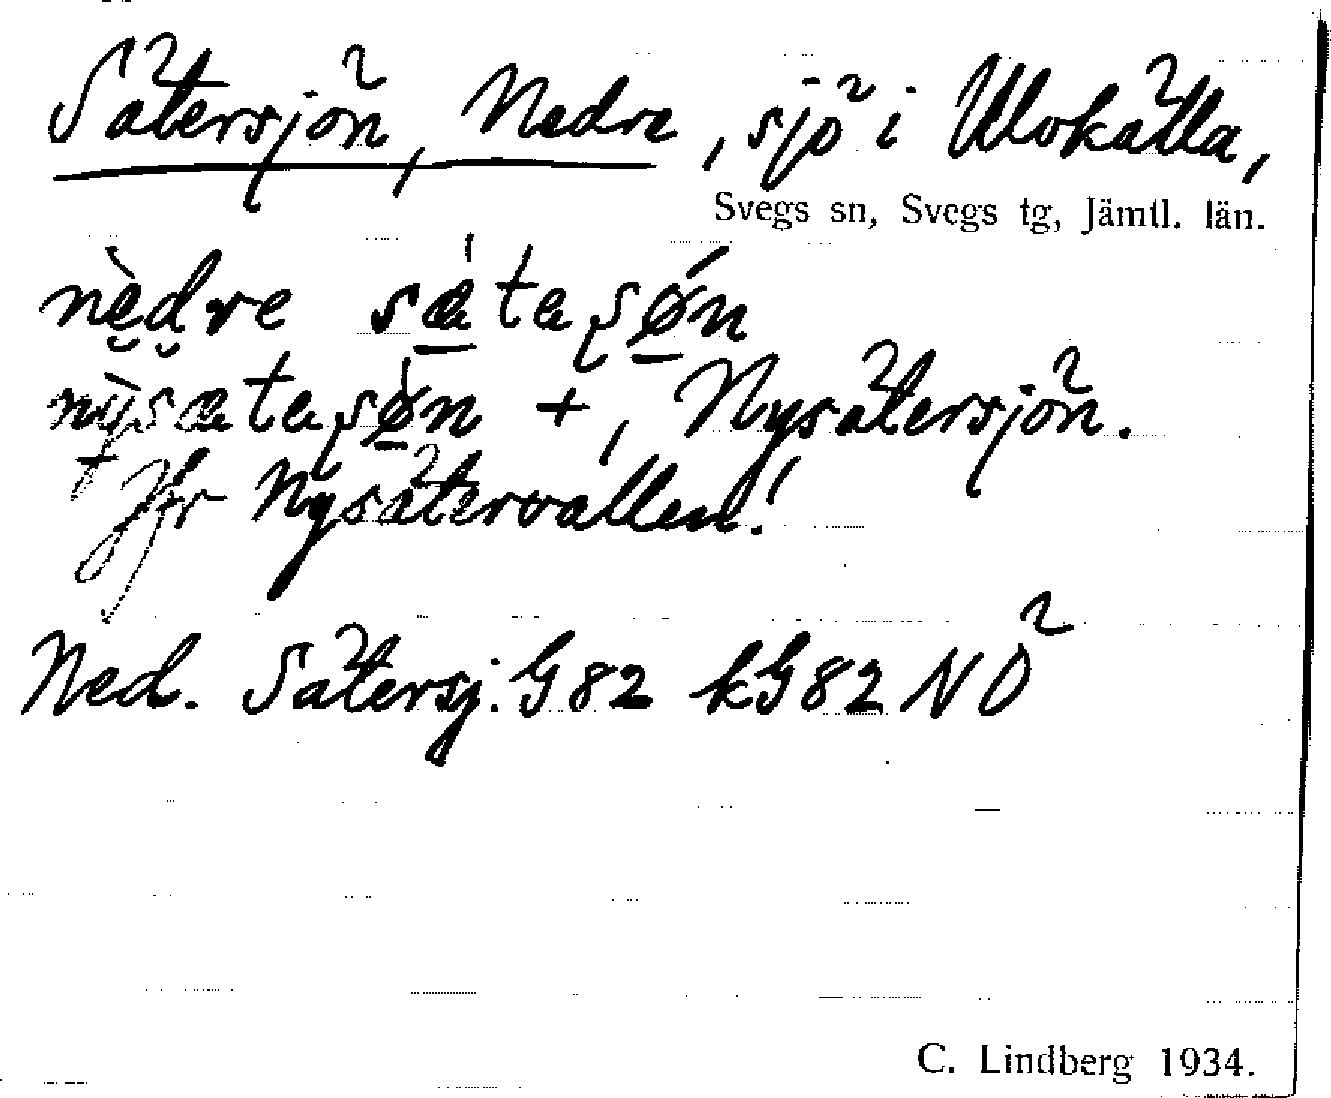 Sätersjön, Nedre, sjö i Ulvkälla,
Svegs sn, Svegs tg, Jämtl. län.
nèdre sǽtaʂǿn
nỳsætaʂøn +, Nysätersjön.
Jfr Nysätervallen!
Ned. Sätersj. G82 kG82 NÖ
C. Lindberg 1934.